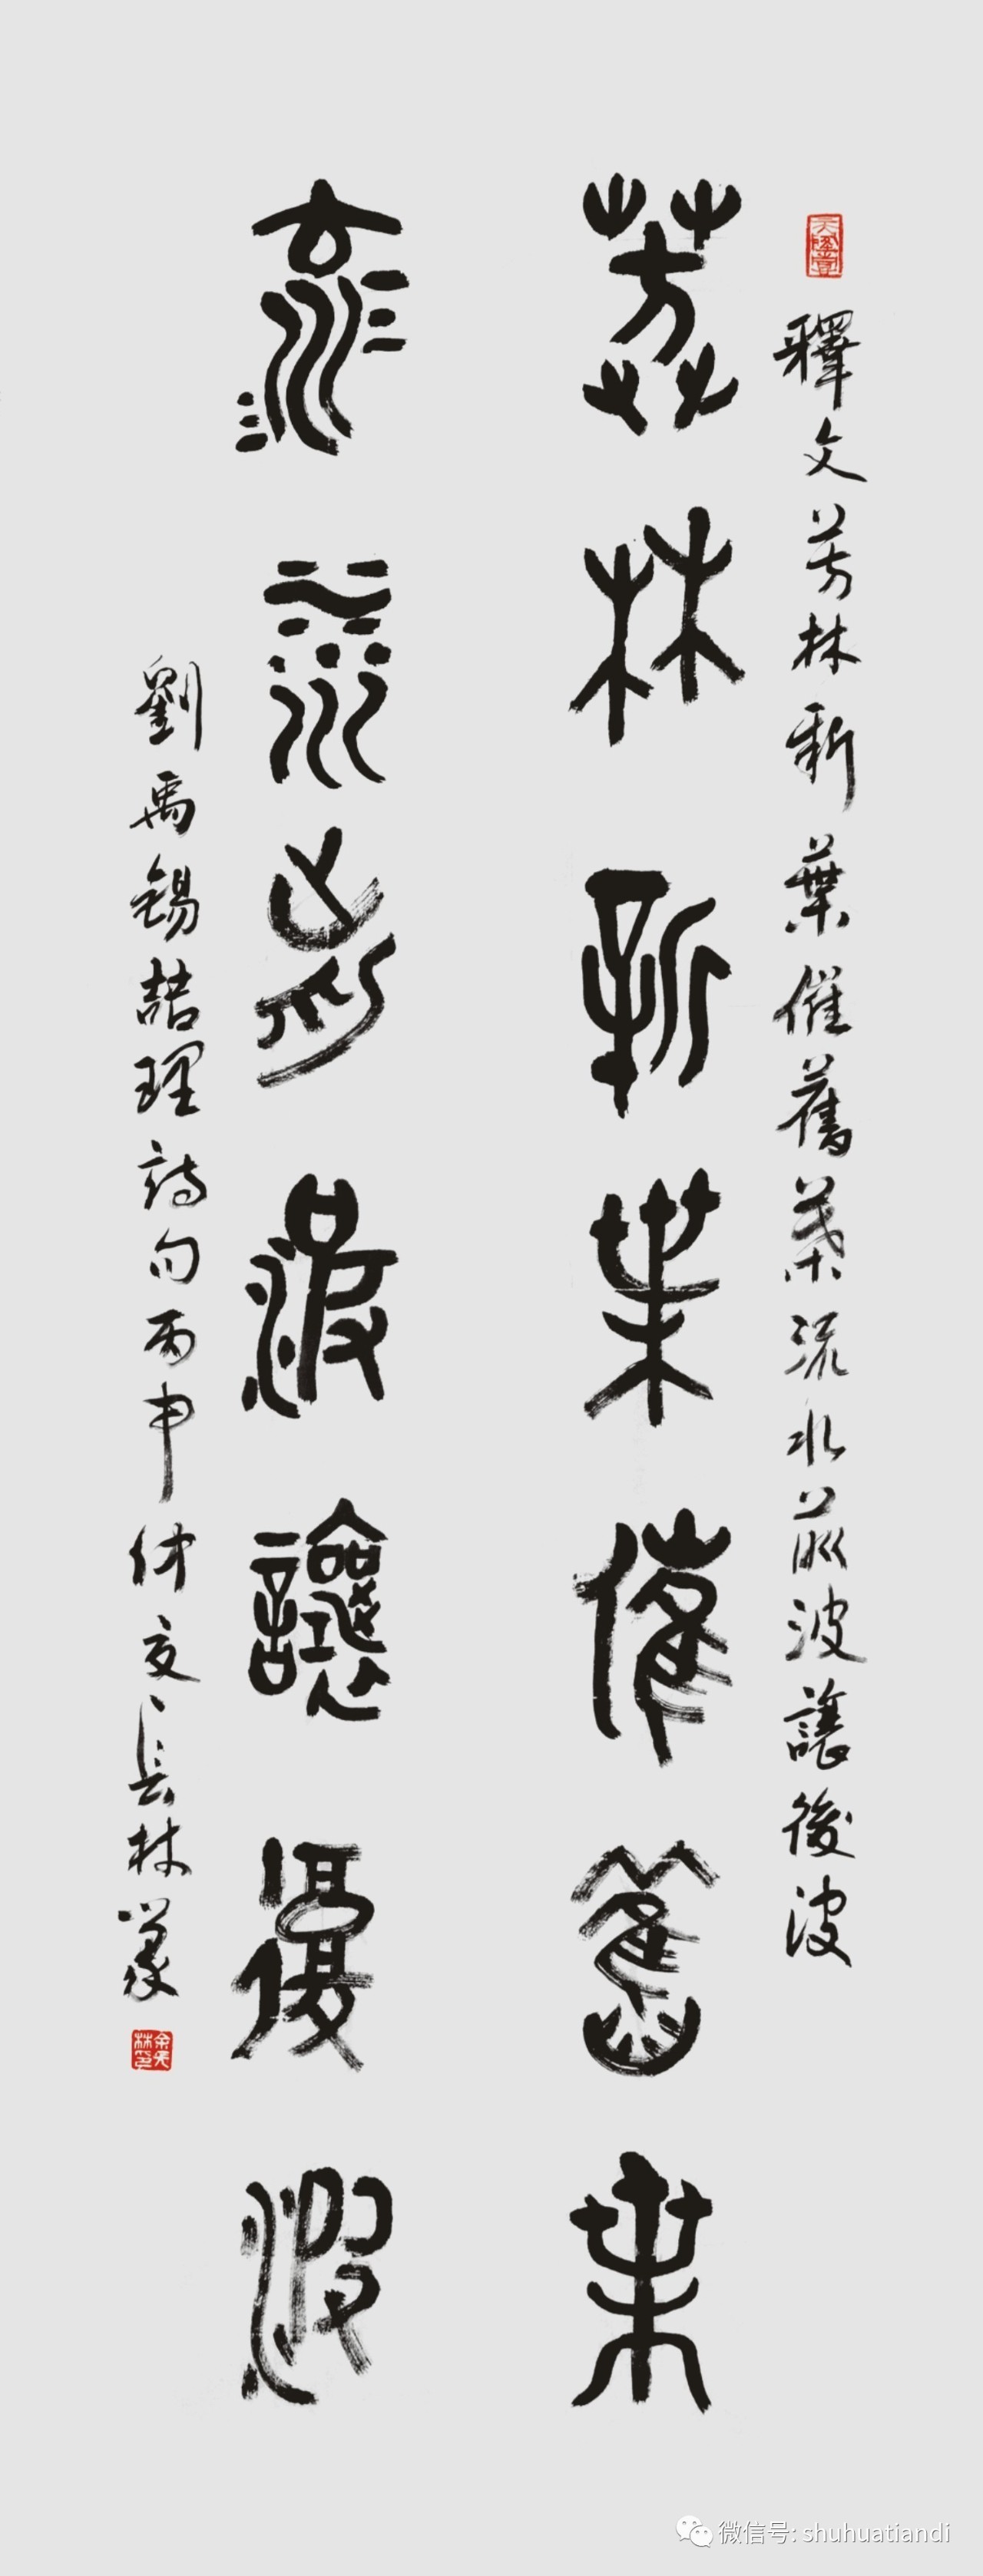 釋文芳林新葉催舊葉流水前波讓後波
芳林新葉催舊葉
流水前波讓後波
劉禹錫喆理詩句丙申仲夏長林篆
微信号: shuhuatiandi